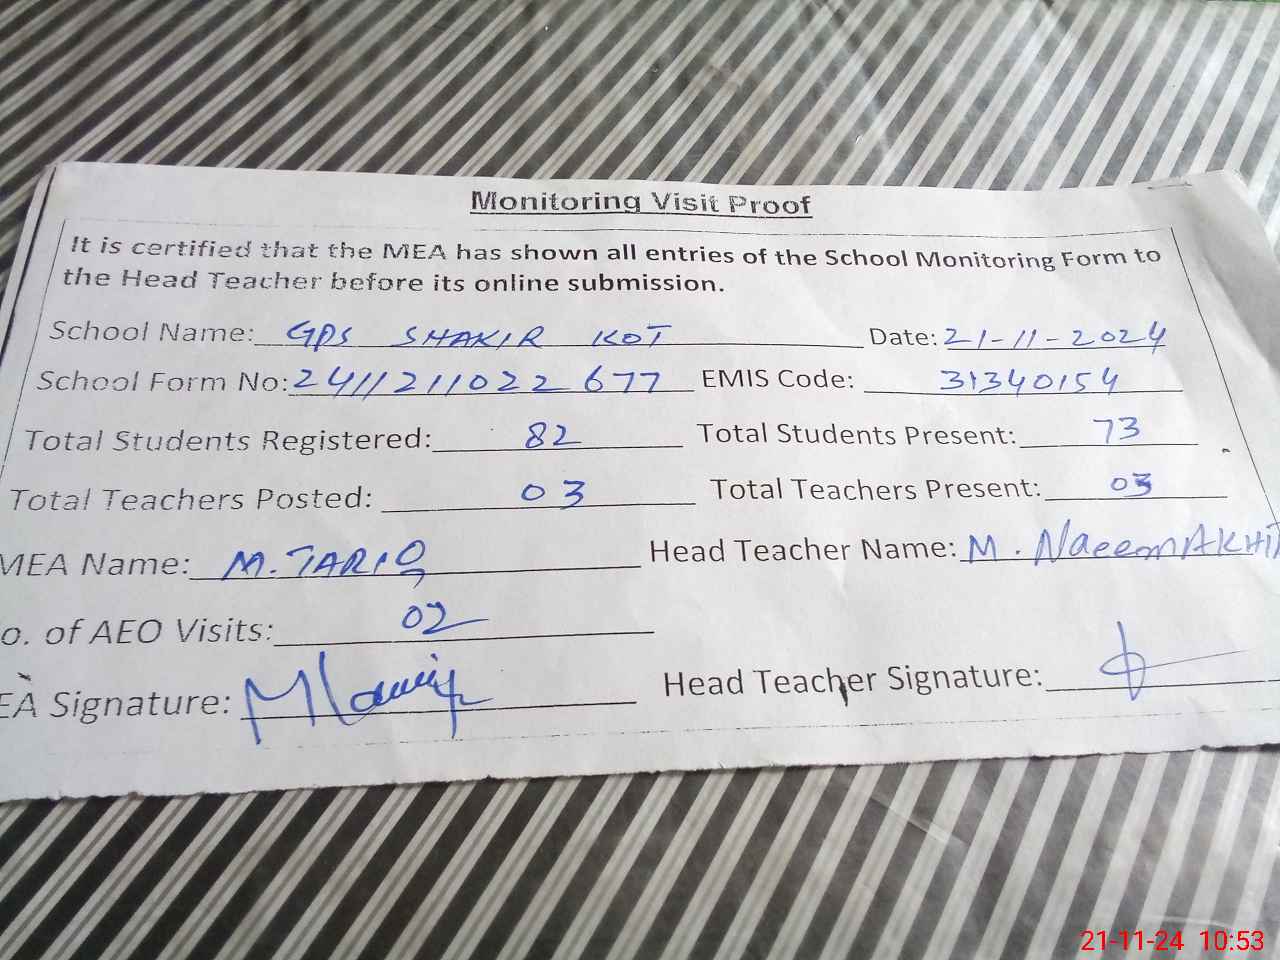 Monitoring Visit Proof
It is certified that the MEA has shown all entries of the School Monitoring Form to
the Head Teacher before its online submission.
School Name: GPS SHAKIR KOT Date: 21-11-2024
School Form No: 2411211022677 EMIS Code: 31340154
Total Students Registered: 82 Total Students Present: 73
Total Teachers Posted: 03 Total Teachers Present: 03
MEA Name: M. TARIQ Head Teacher Name: M. Naeem AKHT
o. of AEO Visits: 02
EA Signature: Head Teacher Signature:
21-11-24 10:53